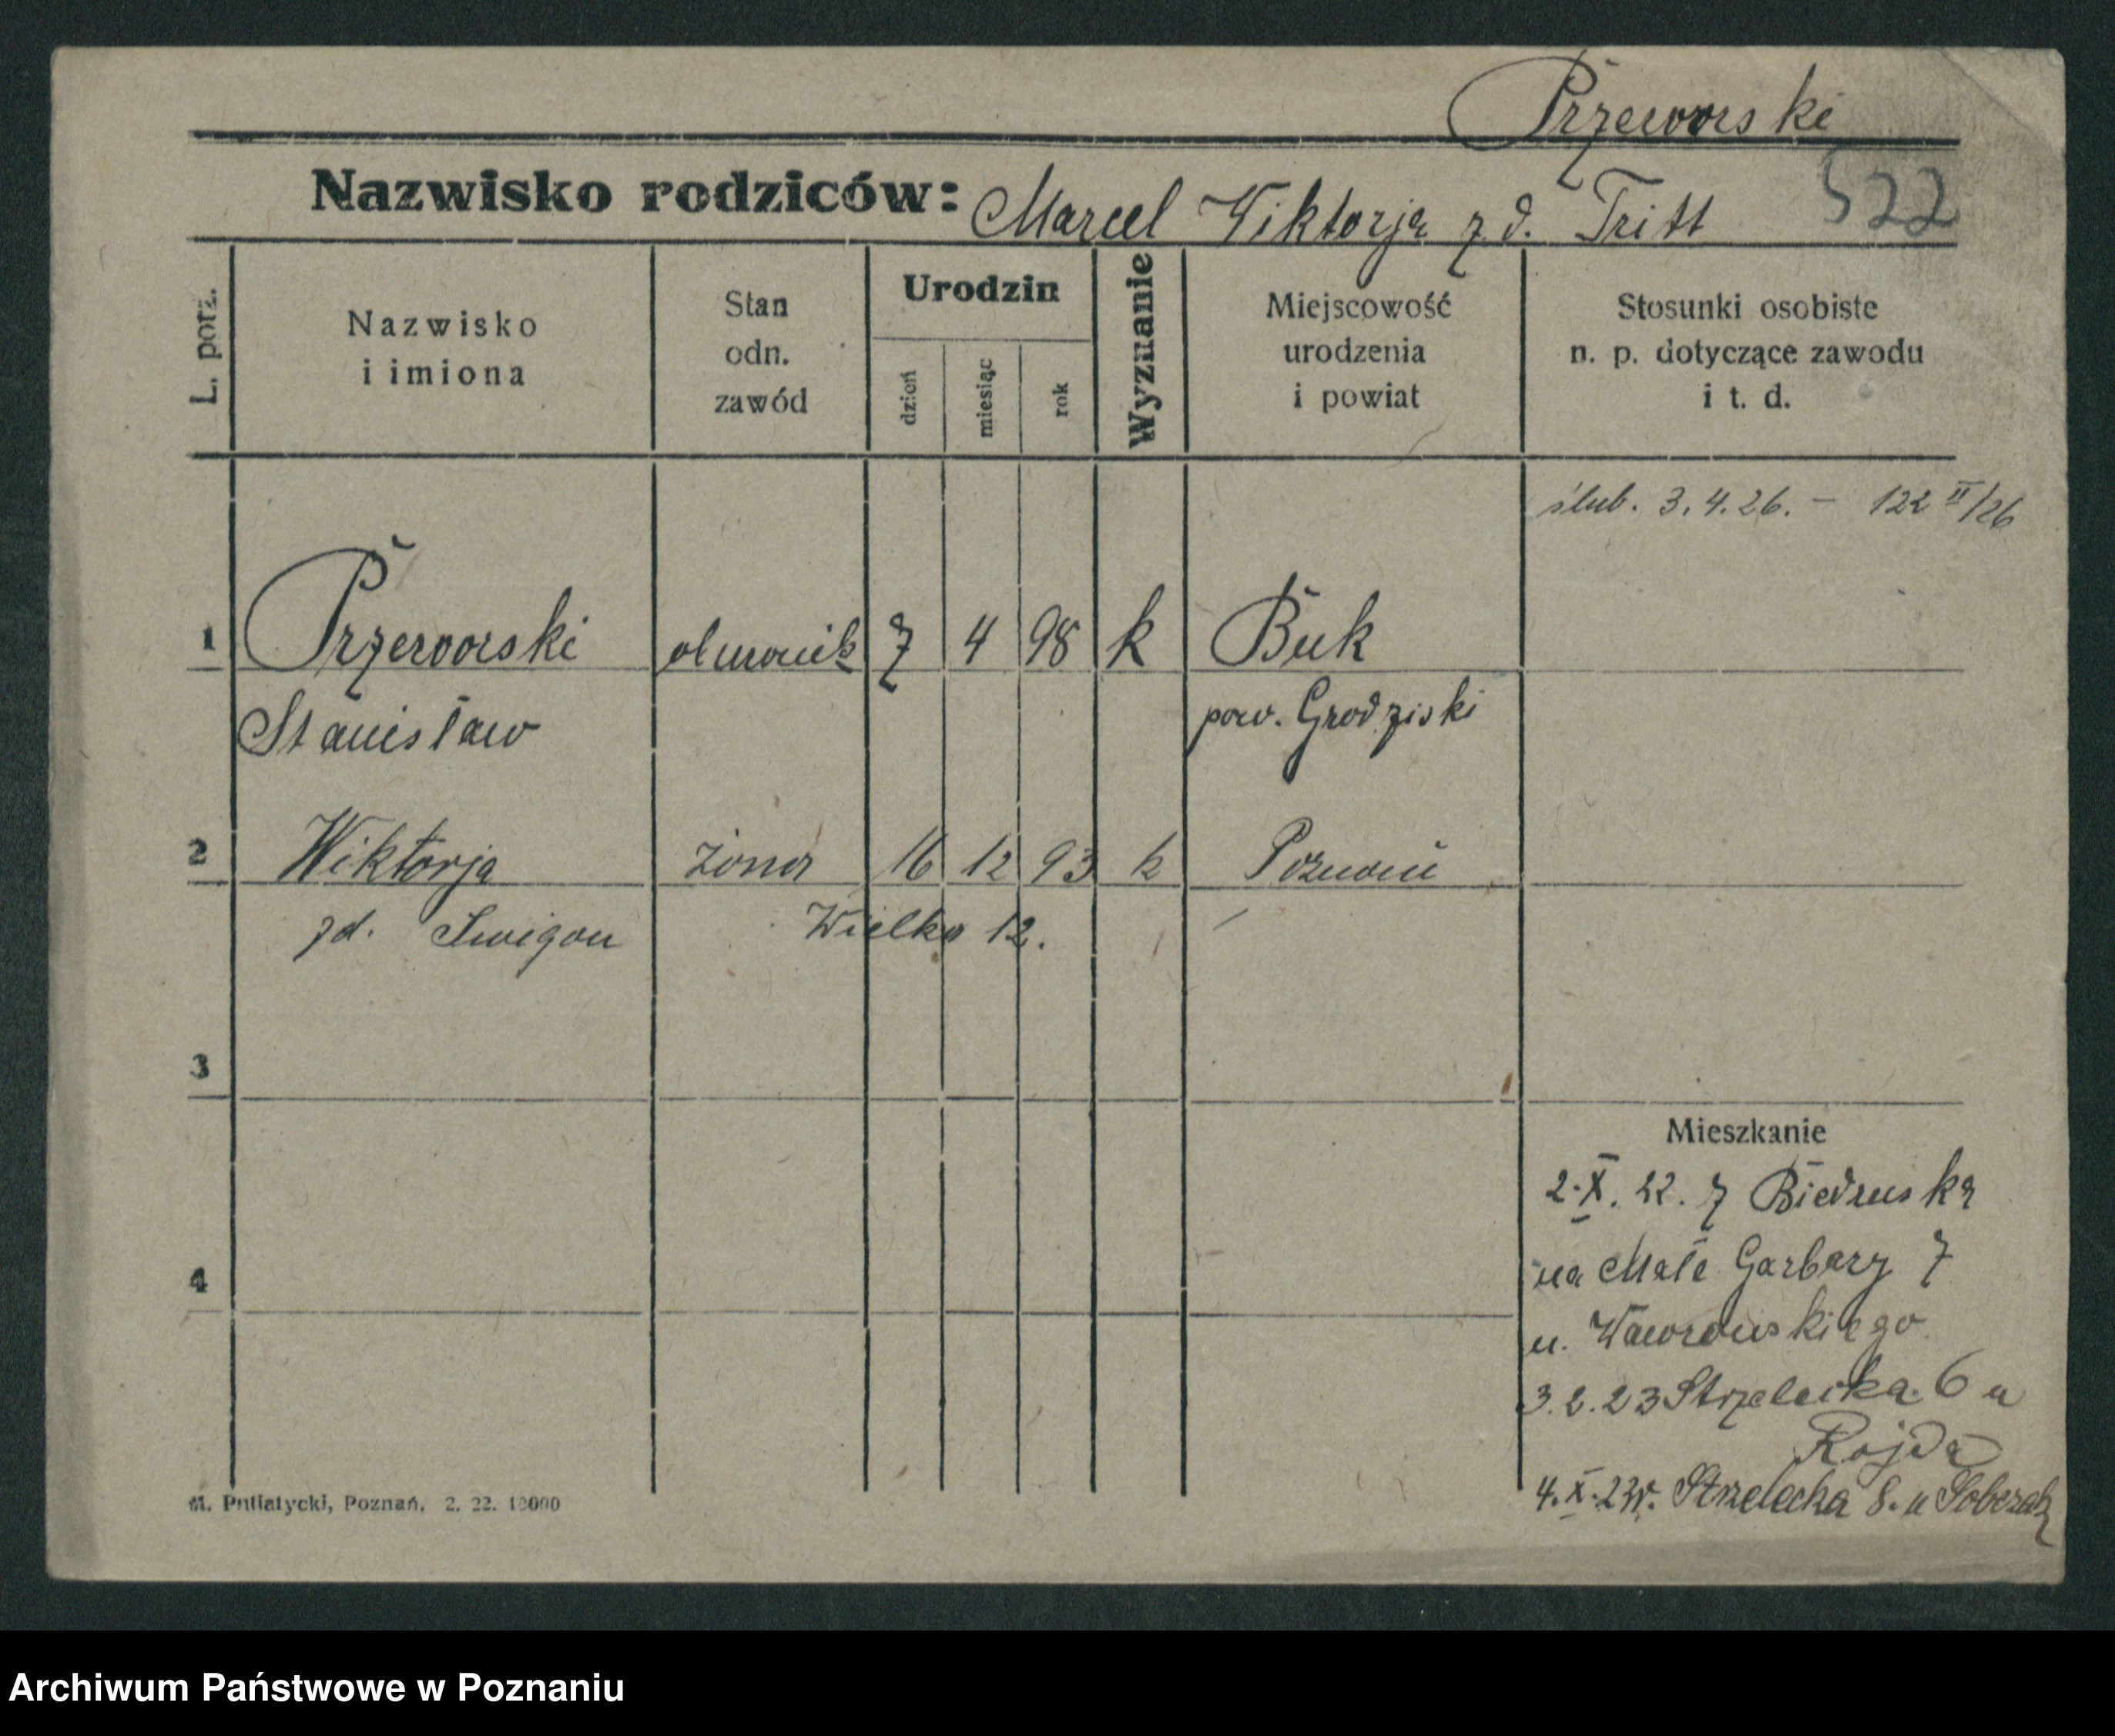 Przeworski
Nazwisko rodziców: Marcel Wiktorja z d. Tritt 522
L. porz.
Nazwisko
i imiona
Stan
odn.
zawód
Urodzin
dzień
miesiąc
rok
Wyznanie
Miejscowość
urodzenia
i powiat
Stosunki osobiste
n. p. dotyczące zawodu
i t. d.
ślub. 3.4.26. – 122 II/26
1 Przeworski 7 4 98 k Buk
Stanisław pow. Grodziski
2 Wiktorja żona 16 12 93 k Poznań
zd. Wielka 12.
3
Mieszkanie
2.X.22. z Biedruska
4 na Małe Garbary 7
u.
3.2.23 Strzelecka 6 u
Rojda
4.X.23r. Strzelecka 8. u
M. Putiatycki, Poznań. 2. 22. 10000
Archiwum Państwowe w Poznaniu